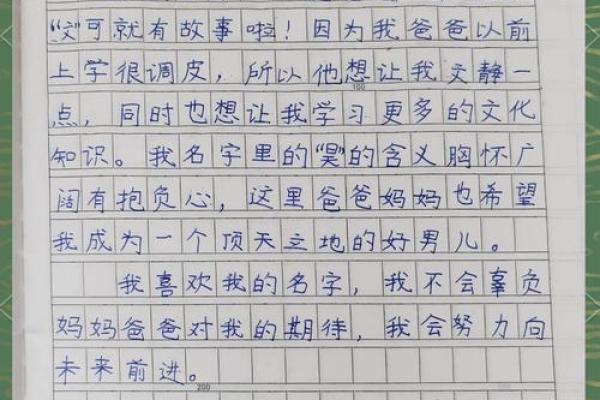 “文”可就有故事啦！因为我爸爸以前
上学很调皮，所以他想让我文静一
100
点，同时也想让我学习更多的文化
知识。我名字里的“昊”的含义胸怀广
阔有抱负心，这里爸爸妈妈也希望
我成为一个顶天立地的好男儿。
我喜欢我的名字，我不会辜负
妈妈爸爸对我的期待，我会努力向
未来前进。
200